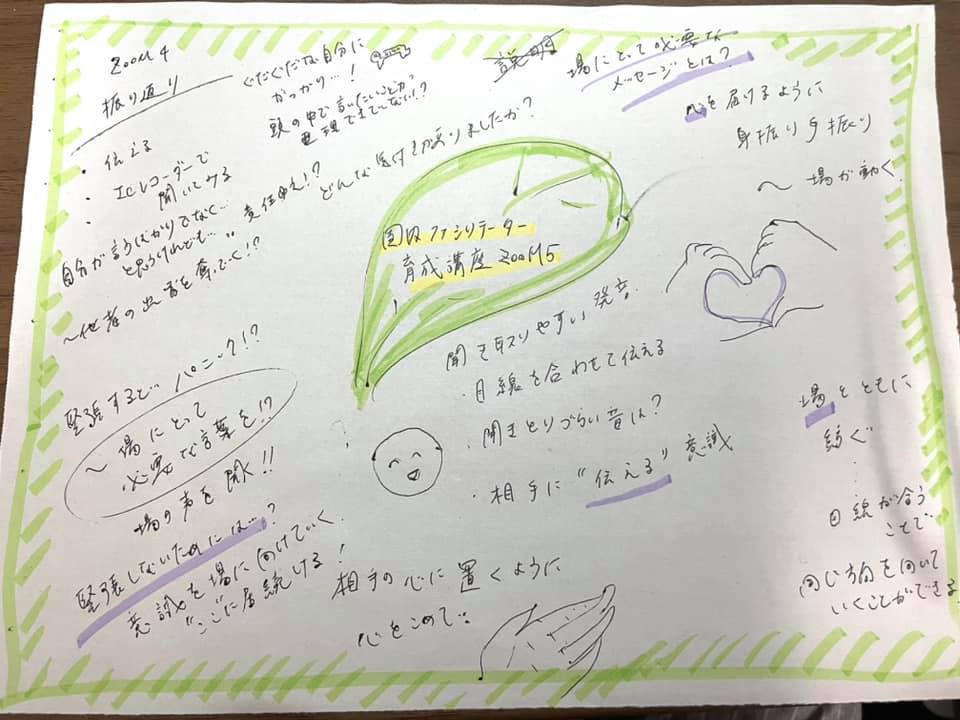 ZOOM 4
振り返り
・伝える
・ICレコーダーで
聞いてみる
・自分が言うばかりでなく…
と思うけれども…
〜他者の出番を奪ってく!?
ぐだぐだな自分に
がっかり…!
頭の中で言いたいことが
整理できてない!?
責任回避!?
どんな気付きがありましたか?
説明
場にとって必要な
メッセージとは?
心を届けるように
身振り手振り
〜場が動く
ファシリテーター
育成講座 ZOOM5
聞き取りやすい発音
・目線を合わせて伝える
・聞きとりづらい音は?
・相手に"伝える"意識
緊張すると…パニック!?
〜場にとって
必要な言葉を!?
場の声を聞く!!
緊張しないためには…?
意識を場に向けていく
"ここ"に居続ける!
相手の心に置くように
心をこめて…
場とともに
紡ぐ
目線が合う
ことで…
同じ方向を向いて
いくことができる